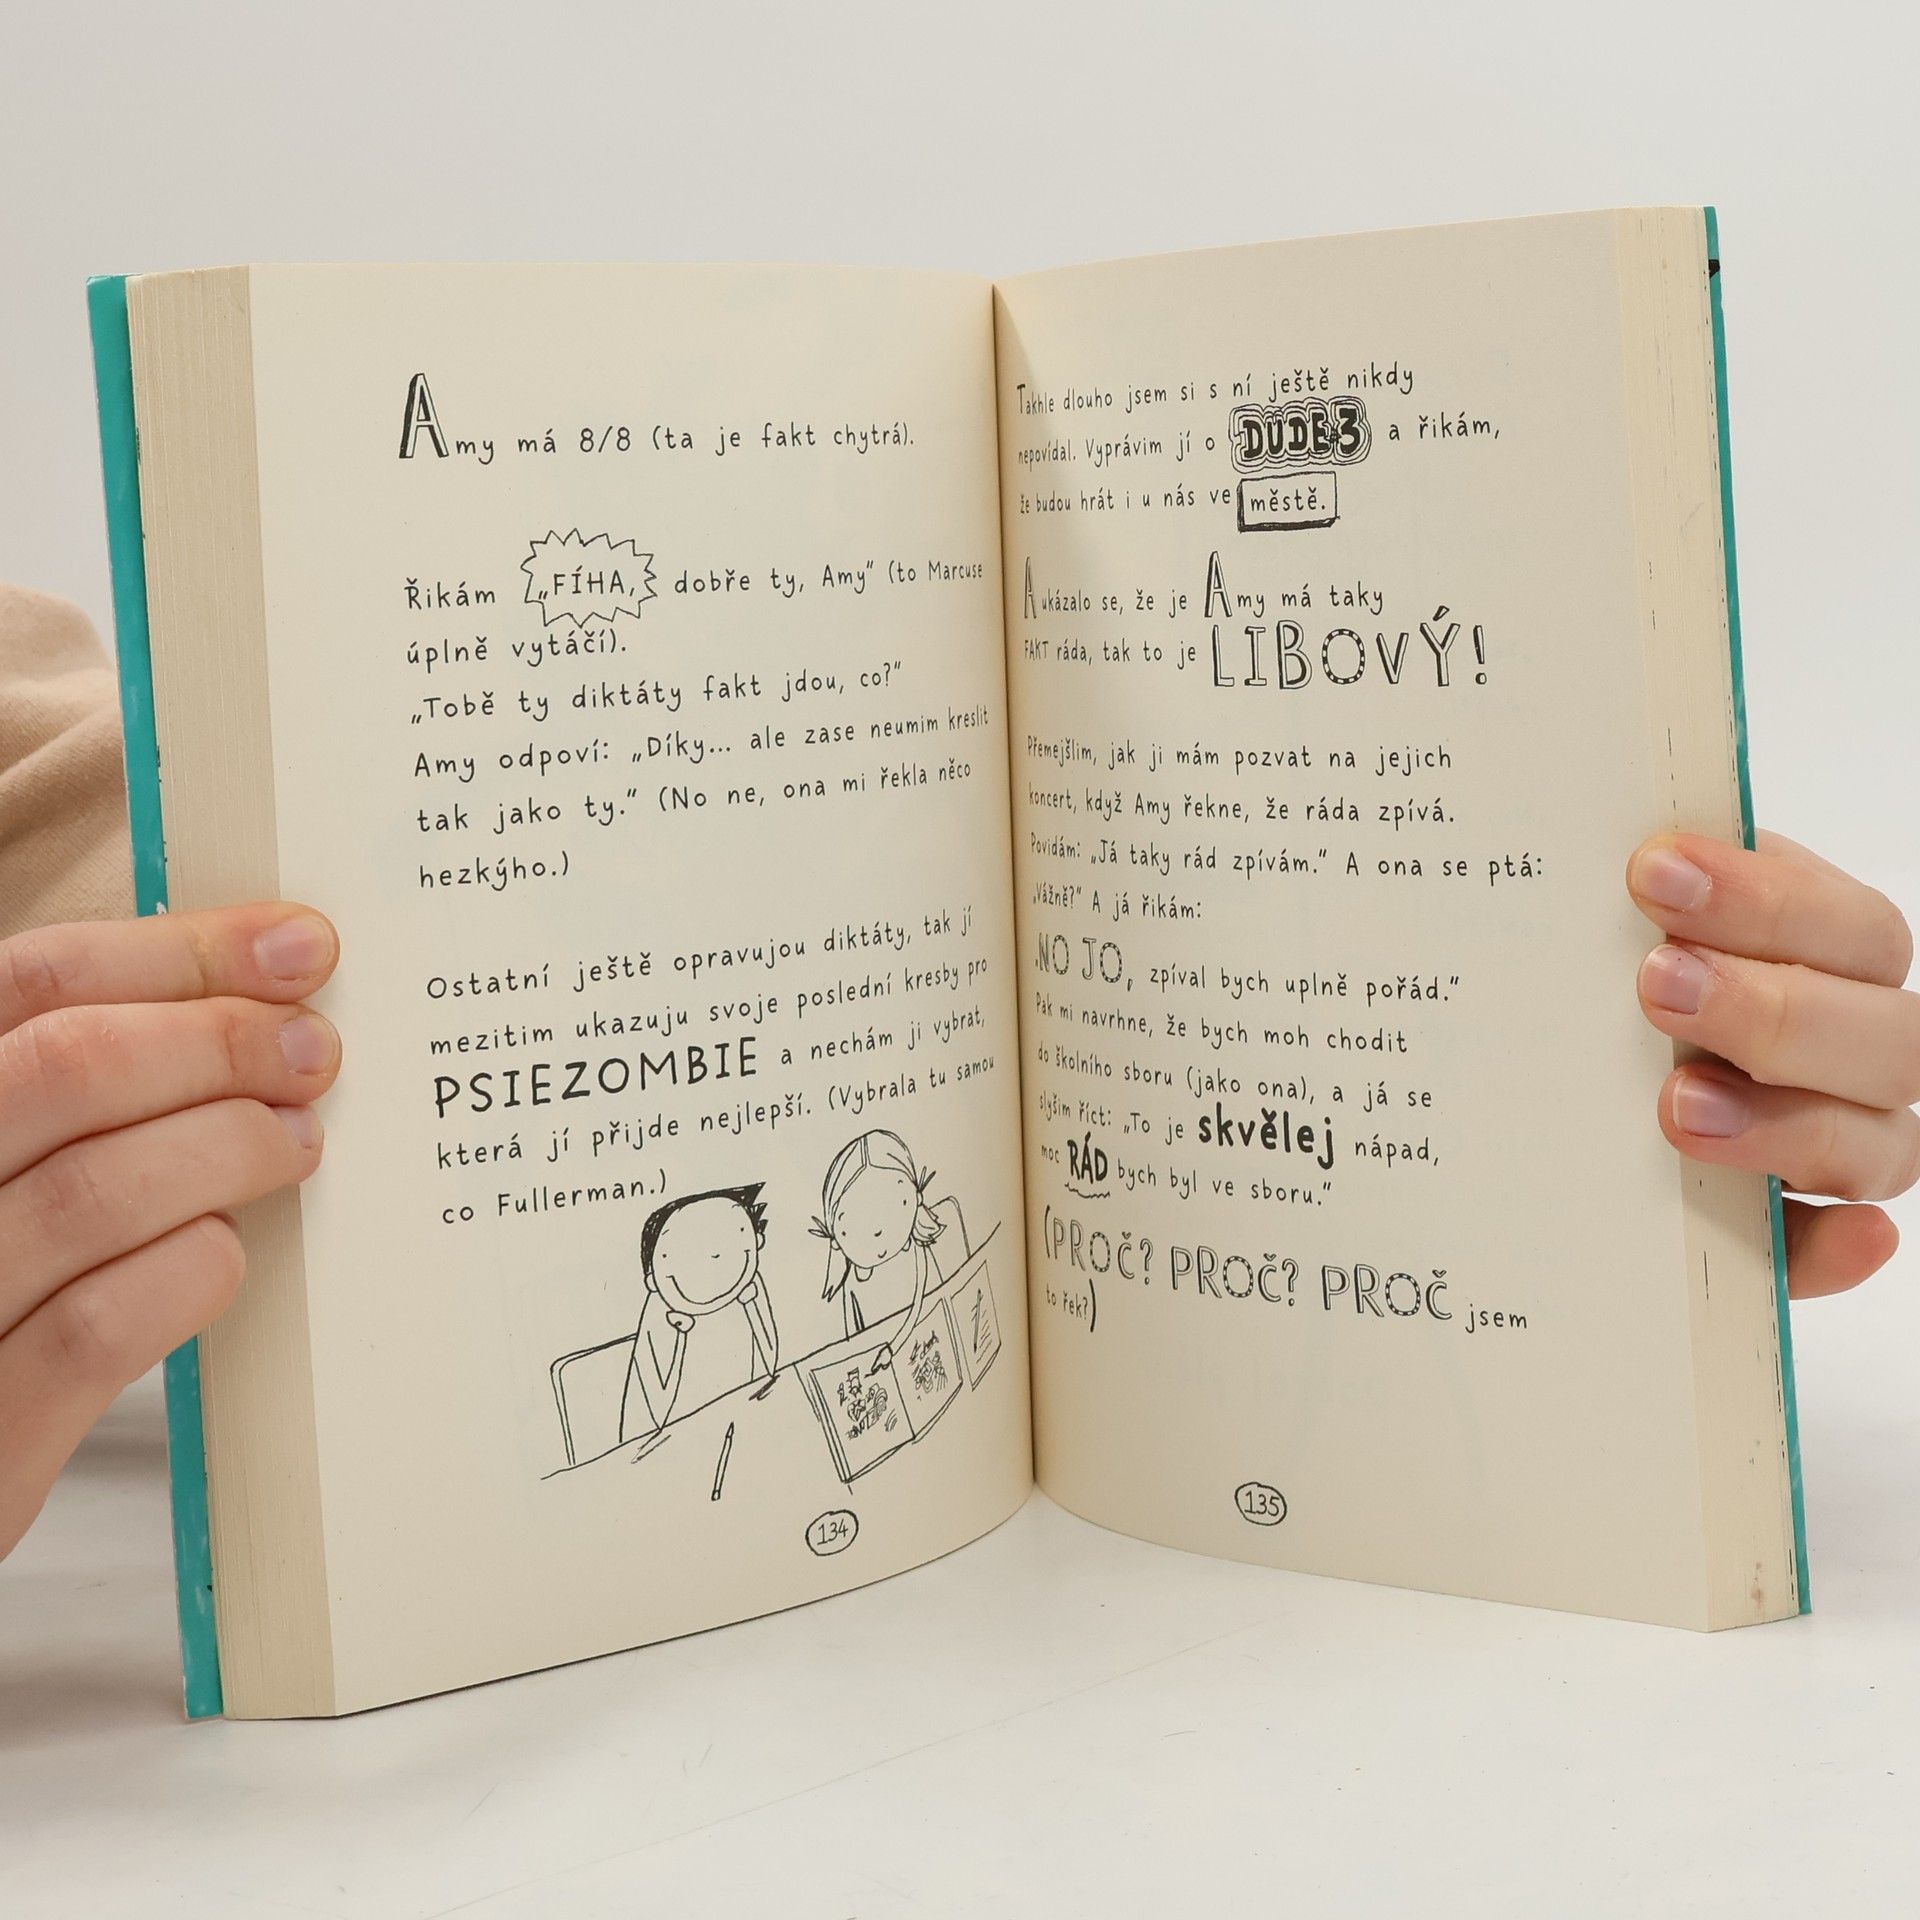 Amy má 8/8 (ta je fakt chytrá).
Řikám „FÍHA, dobře ty, Amy“ (to Marcuse
úplně vytáčí).
„Tobě ty diktáty fakt jdou, co?“
Amy odpoví: „Díky... ale zase neumim kreslit
tak jako ty.“ (No ne, ona mi řekla něco
hezkýho.)
Ostatní ještě opravujou diktáty, tak jí
mezitim ukazuju svoje poslední kresby pro
PSIEZOMBIE a nechám ji vybrat,
která jí přijde nejlepší. (Vybrala tu samou
co Fullerman.)
134
Takhle dlouho jsem si s ní ještě nikdy
nepovídal. Vyprávim jí o DUDE3 a řikám,
že budou hrát i u nás ve městě.
A ukázalo se, že je Amy má taky
FAKT ráda, tak to je LIBOVÝ!
Přemejšlim, jak ji mám pozvat na jejich
koncert, když Amy řekne, že ráda zpívá.
Povidám: „Já taky rád zpívám.“ A ona se ptá:
„Vážně?“ A já řikám:
„NO JO, zpíval bych uplně pořád.“
Pak mi navrhne, že bych moh chodit
do školního sboru (jako ona), a já se
slyšim říct: „To je skvělej nápad,
moc RÁD bych byl ve sboru.“
(PROČ? PROČ? PROČ jsem
to řek?)
135